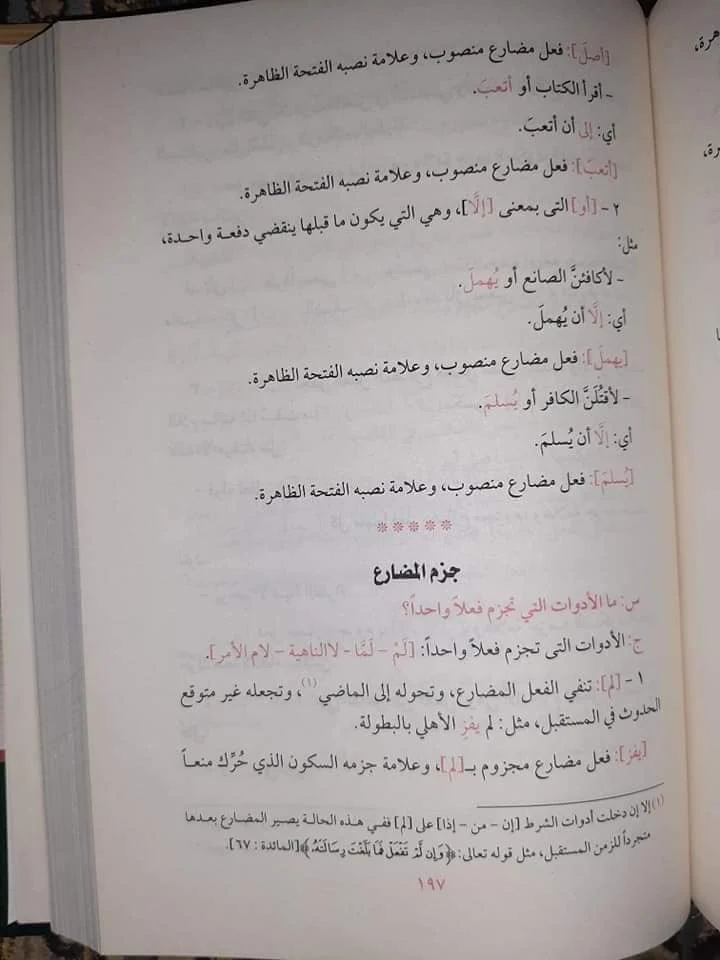 [أصلَ]: فعل مضارع منصوب، وعلامة نصبه الفتحة الظاهرة.
- أقرأ الكتاب أو أتعبَ.
أي: إلى أن أتعبَ.
[أتعبَ]: فعل مضارع منصوب، وعلامة نصبه الفتحة الظاهرة.
٢ - [أو] التى بمعنى [إلَّا]، وهي التي يكون ما قبلها ينقضي دفعة واحدة،
مثل:
- لأكافئنَّ الصانع أو يُهملَ.
أي: إلَّا أن يُهملَ.
[يهملَ]: فعل مضارع منصوب، وعلامة نصبه الفتحة الظاهرة.
- لأقتُلَنَّ الكافر أو يُسلمَ.
أي: إلَّا أن يُسلمَ.
[يُسلمَ]: فعل مضارع منصوب، وعلامة نصبه الفتحة الظاهرة.
*****
جزم المضارع
س: ما الأدوات التي تجزم فعلاً واحداً؟
ج: الأدوات التى تجزم فعلاً واحداً: [لَمْ - لَمَّا - لا الناهية - لام الأمر].
١ - [لم]: تنفي الفعل المضارع، وتحوله إلى الماضي(١)، وتجعله غير متوقع
الحدوث في المستقبل، مثل: لم يفزِ الأهلي بالبطولة.
[يفز]: فعل مضارع مجزوم بـ[لم]، وعلامة جزمه السكون الذي حُرِّك منعاً
(١) إلا إن دخلت أدوات الشرط [إن - من - إذا] على [لم] ففي هذه الحالة يصير المضارع بعدها
متجرداً للزمن المستقبل، مثل قوله تعالى: ﴿وَإِن لَّمْ تَفْعَلْ فَمَا بَلَّغْتَ رِسَالَتَهُ﴾ [المائدة : ٦٧].
١٩٧